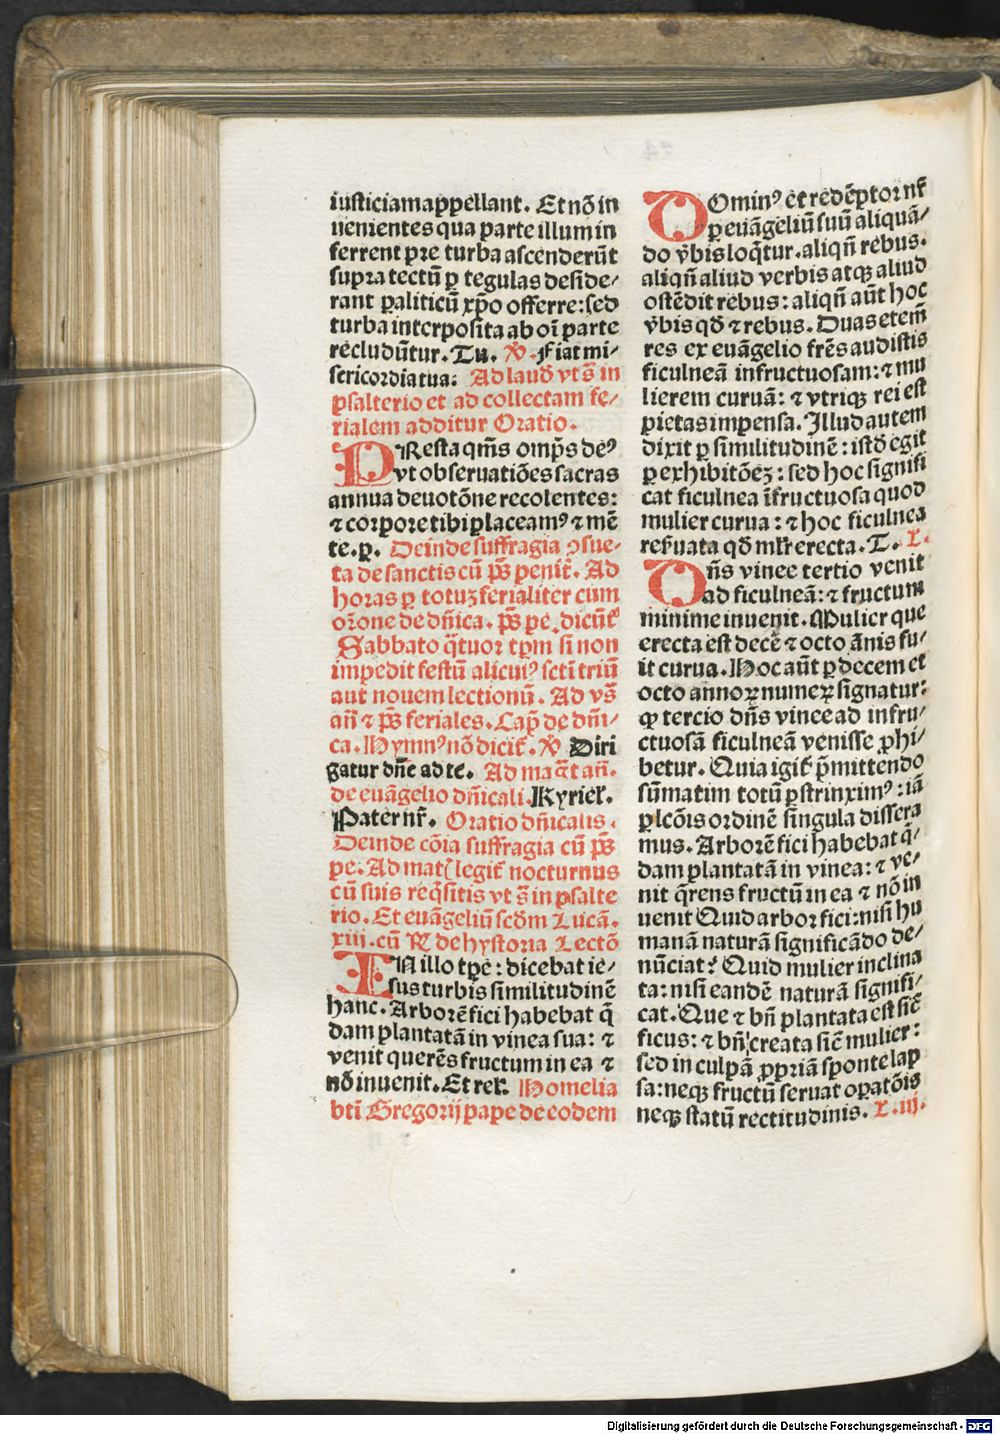 iusticiam appellant. Et nō in
uenientes qua parte illum in
ferrent pre turba ascenderūt
supra tectū ꝑ tegulas deside⸗
rant paliticū xp̄o offerre: sed
turba interposita ab oī parte
recludūtur. Tu. ℣ Fiat mi⸗
sericordia tua: Ad laud̄ vt s̄ in
psalterio et ad collectam fe⸗
rialem additur Oratio.
PResta qm̄s omp̄s deꝰ
vt obseruatiōes sacras
annua deuotōne recolentes:
⁊ corpore tibi placeamꝰ ⁊ mē
te. ꝑ. Deinde suffragia ꝯsue⸗
ta de sanctis cū p̄s penit̄. Ad
horas ꝑ totuꝫ ferialiter cum
orōne de dn̄ica. p̄s pe. dicunt̄
Sabbato q̄tuor tp̄m si non
impedit festū alicuiꝰ scti triū
aut nouem lectionū. Ad vs̄
an̄ ⁊ p̄s feriales. Cap̄ de dn̄i⸗
ca. Hymnꝰ nō dicit̄. ℣ Diri
gatur dn̄e ad te. Ad maḡt an̄.
de euāgelio dn̄icali. Kyriel̄.
Pater nr̄. Oratio dn̄icalis.
Deinde cōia suffragia cū p̄s
pe. Ad mat̄ legit̄ nocturnus
cū suis req̄sitis vt s̄ in psalte
rio. Et euāgeliū scd̄m Lucā.
xiii. cū ℟ de hystoria Lectō
IN illo tp̄e: dicebat ie⸗
sus turbis similitudinē
hanc. Arborē fici habebat q̄
dam plantatā in vinea sua: ⁊
venit querēs fructum in ea ⁊
nō inuenit. Et rel̄. Homelia
bt̄i Gregorij pape de eodem
DOminꝰ et redēptor nr̄
ꝑ euāgeliū suū aliquā⸗
do v̄bis loq̄tur. aliqn̄ rebus.
aliqn̄ aliud verbis atqꝫ aliud
ostēdit rebus: aliqn̄ aūt hoc
v̄bis qd̄ ⁊ rebus. Duas etem̄
res ex euāgelio fr̄es audistis
ficulneā infructuosam: ⁊ mu
lierem curuā: ⁊ vtriqꝫ rei est
pietas impensa. Illud autem
dixit ꝑ similitudinē: istd̄ egit
ꝑ exhibitōeꝫ: sed hoc signifi
cat ficulnea īfructuosa quod
mulier curua: ⁊ hoc ficulnea
reẜuata qd̄ ml̄r erecta. T. L.
Dn̄s vinee tertio venit
ad ficulneā: ⁊ fructum
minime inuenit. Mulier que
erecta est decē ⁊ octo ānis fu⸗
it curua. Hoc aūt ꝑ decem et
octo annoꝝ numeꝝ signatur:
ꝙ tercio dn̄s vinee ad infru⸗
ctuosā ficulneā venisse ꝓhi⸗
betur. Quia igit̄ p̄mittendo
sūmatim totū ꝑstrinximꝰ: iā
ꝑ lcōis ordinē singula dissera
mus. Arborē fici habebat q̄⸗
dam plantatā in vinea: ⁊ ve⸗
nit q̄rens fructū in ea ⁊ nō in
uenit Quid arbor fici: nisi hu
manā naturā significādo de⸗
nūciat? Quid mulier inclina
ta: nisi eandē naturā signifi⸗
cat. Que ⁊ bn̄ plantata est sic̄
ficus: ⁊ bn̄ creata sic̄ mulier:
sed in culpā ꝓpriā sponte lap
sa: neqꝫ fructū seruat opatōis
neqꝫ statū rectitudinis. L. iij.
Digitalisierung gefördert durch die Deutsche Forschungsgemeinschaft - DFG